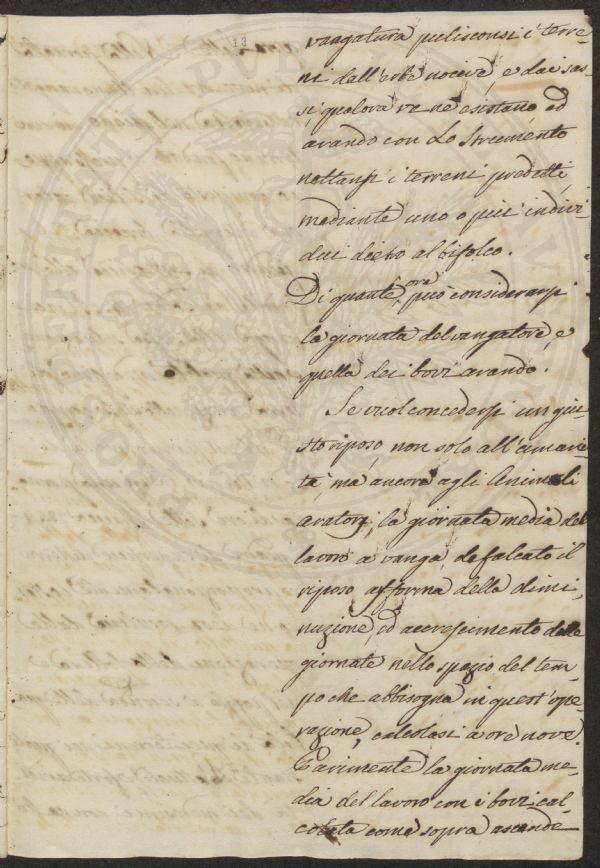 13
vangatura pulisconsi i terre-
ni dall'erbe nocive, e dai sas-
si qualora ve ne esistano ed
arando con Lo Strumento
nettansi i terreni predetti,
mediante uno o più indivi-
dui dietro al bifolco.
Di quante ore può considerarsi
la giornata del vangatore, e
quella dei bovi arando.
Se vuol concedersi un giu-
sto riposo, non solo all'umani-
tà, ma ancora agli Animali
aratorj, la giornata media del
lavoro a vanga, defalcato il
riposo a forma della dimi-
nuzione, ed accrescimento delle
giornate nello spazio del tem-
po che abbisogna in quest'ope-
razione, calcolasi a ore nove.
Parimente la giornata me-
dia del lavoro con i bovi cal-
colata come sopra ascende